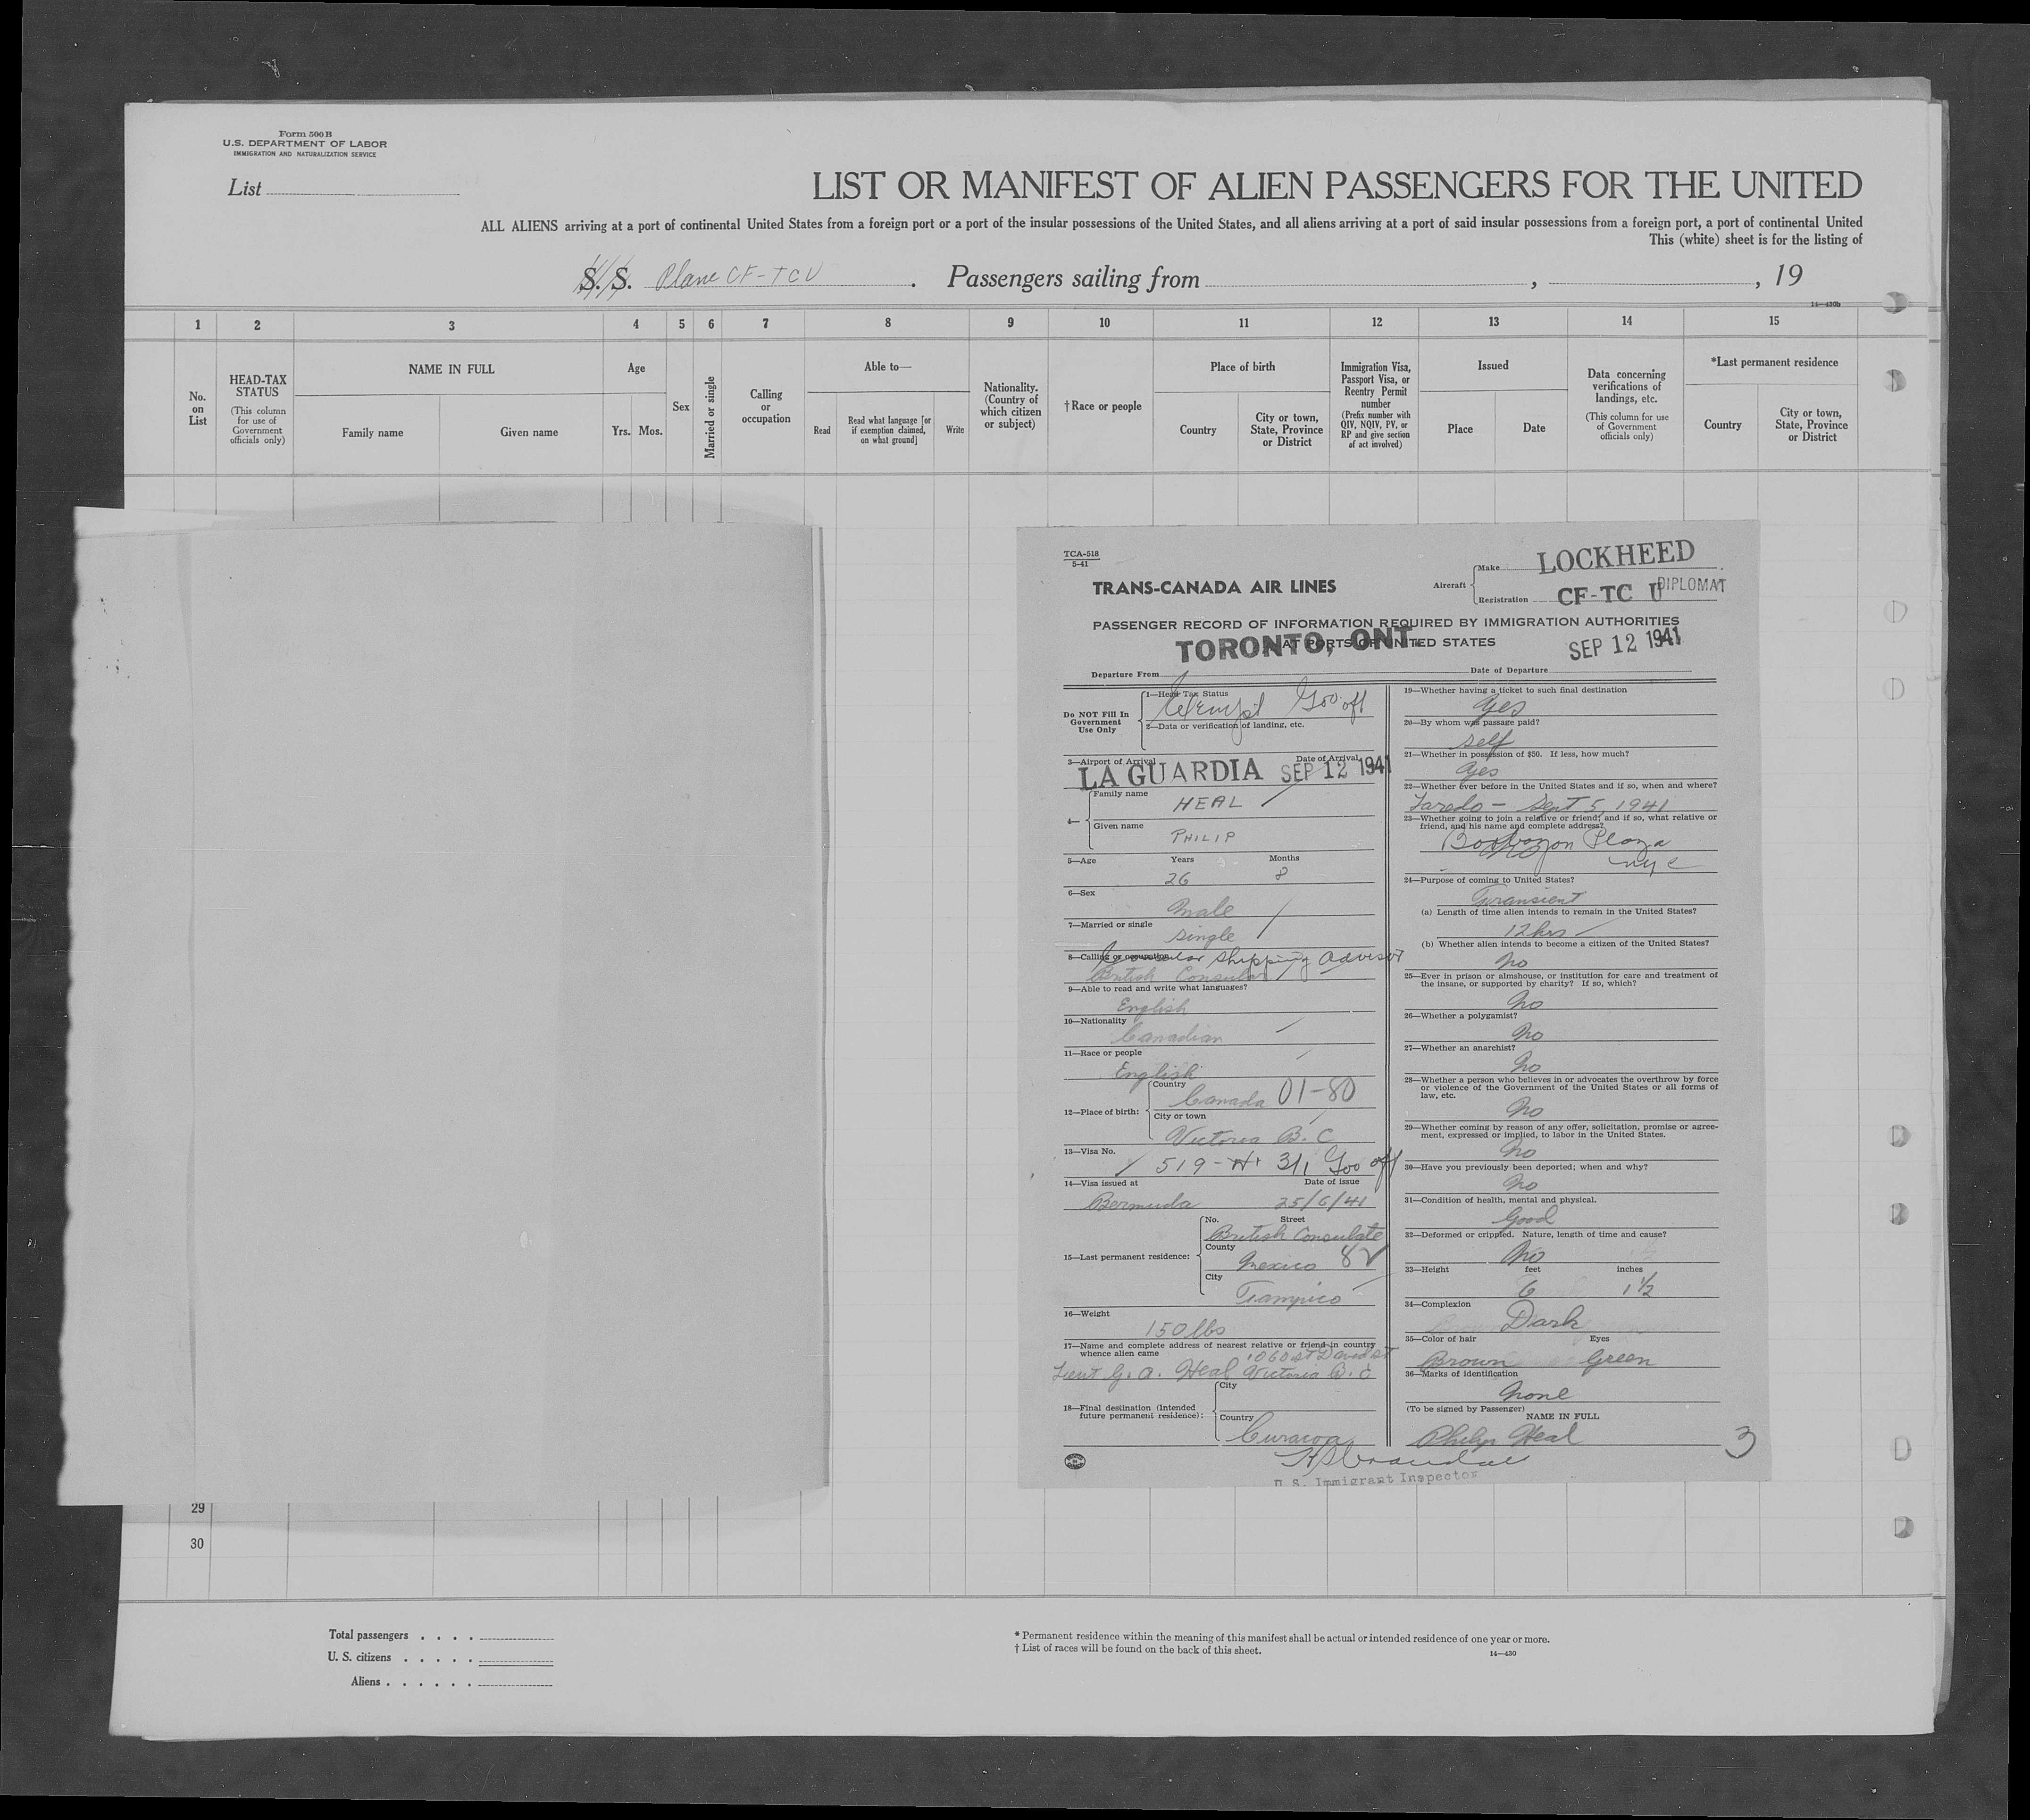 Form 500 B
U.S. DEPARTMENT OF LABOR
IMMIGRATION AND NATURALIZATION SERVICE
List
LIST OR MANIFEST OF ALIEN PASSENGERS FOR THE UNITED
ALL ALIENS arriving at a port of continental United States from a foreign port or a port of the insular possessions of the United States, and all aliens arriving at a port of said insular possessions from a foreign port, a port of continental United
This (white) sheet is for the listing of
S. S. Plane CF-TCU . Passengers sailing from , , 19
14—430b
1 2 3 4 5 6 7 8 9 10 11 12 13 14 15
No. on List
HEAD-TAX STATUS
(This column for use of Government officials only)
NAME IN FULL
Family name Given name
Age
Yrs. Mos.
Sex
Married or single
Calling or occupation
Able to—
Read
Read what language [or if exemption claimed, on what ground]
Write
Nationality. (Country of which citizen or subject)
†Race or people
Place of birth
Country
City or town, State, Province or District
Immigration Visa, Passport Visa, or Reentry Permit number
(Prefix number with QIV, NQIV, PV, or RP and give section of act involved)
Issued
Place Date
Data concerning verifications of landings, etc.
(This column for use of Government officials only)
*Last permanent residence
Country
City or town, State, Province or District
TCA-518
5-41
TRANS-CANADA AIR LINES
Aircraft
Make LOCKHEED
Registration CF-TC U
DIPLOMAT
PASSENGER RECORD OF INFORMATION REQUIRED BY IMMIGRATION AUTHORITIES
AT PORTS OF UNITED STATES
TORONTO, ONT.
SEP 12 1941
Departure From Date of Departure
Do NOT Fill In
Government
Use Only
1—Head Tax Status
Exempt Gov off
2—Data or verification of landing, etc.
3—Airport of Arrival Date of Arrival
LA GUARDIA SEP 12 1941
4—
Family name
HEAL
Given name
PHILIP
5—Age Years Months
26 8
6—Sex
Male
7—Married or single
single
8—Calling or occupation
Consular Shipping Advisor
British Consular
9—Able to read and write what languages?
English
10—Nationality
Canadian
11—Race or people
English
12—Place of birth:
Country
Canada 01-80
City or town
Victoria B. C
13—Visa No.
519- 3/1 Gov off
14—Visa issued at Date of issue
Bermuda 25/6/41
15—Last permanent residence:
No. Street
British Consulate
County
Mexico 82
City
Tampico
16—Weight
150 lbs
17—Name and complete address of nearest relative or friend in country
whence alien came
1060 St David St
Lieut G. A. Heal Victoria B. C
18—Final destination (Intended
future permanent residence):
City
Country
Curacoa
19—Whether having a ticket to such final destination
Yes
20—By whom was passage paid?
self
21—Whether in possession of $50. If less, how much?
Yes
22—Whether ever before in the United States and if so, when and where?
Laredo - Sept 5, 1941
23—Whether going to join a relative or friend; and if so, what relative or
friend, and his name and complete address?
no
Plaza
nyc
24—Purpose of coming to United States?
Transient
(a) Length of time alien intends to remain in the United States?
12 hrs
(b) Whether alien intends to become a citizen of the United States?
No
25—Ever in prison or almshouse, or institution for care and treatment of
the insane, or supported by charity? If so, which?
No
26—Whether a polygamist?
No
27—Whether an anarchist?
No
28—Whether a person who believes in or advocates the overthrow by force
or violence of the Government of the United States or all forms of
law, etc.
No
29—Whether coming by reason of any offer, solicitation, promise or agree-
ment, expressed or implied, to labor in the United States.
No
30—Have you previously been deported; when and why?
No
31—Condition of health, mental and physical.
Good
32—Deformed or crippled. Nature, length of time and cause?
No
33—Height feet inches
6 1 1/2
34—Complexion
Dark
35—Color of hair Eyes
Brown Green
36—Marks of identification
None
(To be signed by Passenger)
NAME IN FULL
Philip Heal
3
U. S. Immigrant Inspector
29
30
Total passengers . . . .
U. S. citizens . . . . .
Aliens . . . . . .
* Permanent residence within the meaning of this manifest shall be actual or intended residence of one year or more.
† List of races will be found on the back of this sheet.
14—430